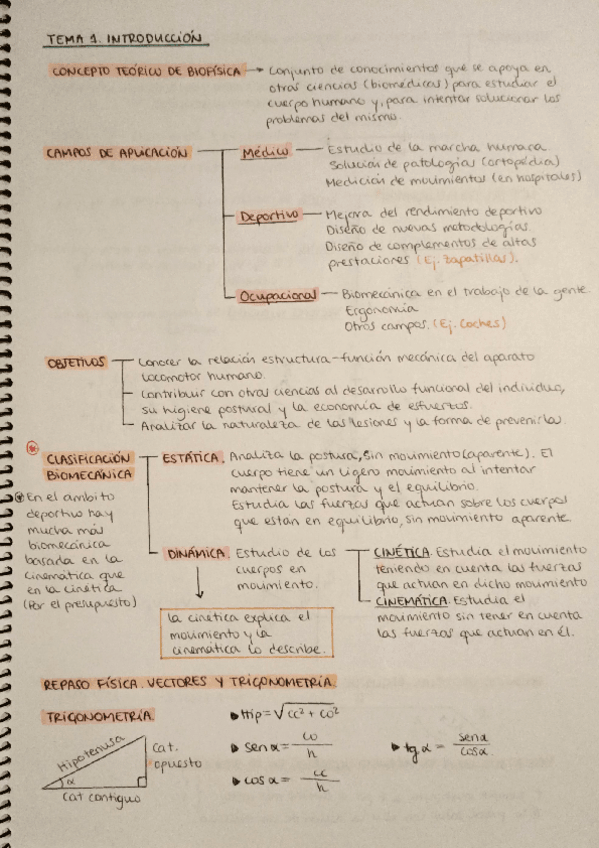 TEMA 1. INTRODUCCIÓN
CONCEPTO TEÓRICO DE BIOFÍSICA → Conjunto de conocimientos que se apoya en
otras ciencias (biomédicas) para estudiar el
cuerpo humano y, para intentar solucionar los
problemas del mismo.
CAMPOS DE APLICACIÓN
Médico
Estudio de la marcha humana
Solución de patologías (ortopedia)
Medición de movimientos (en hospitales)
Deportivo
Mejora del rendimiento deportivo
Diseño de nuevas metodologías.
Diseño de complementos de altas
prestaciones (Ej. Zapatillas).
Ocupacional
Biomecánica en el trabajo de la gente.
Ergonomía
Otros campos. (Ej. Coches)
OBJETIVOS
Conocer la relación estructura-función mecánica del aparato
locomotor humano.
Contribuir con otras ciencias al desarrollo funcional del individuo,
su higiene postural y la economía de esfuerzos.
Analizar la naturaleza de las lesiones y la forma de prevenirlas.
* CLASIFICACIÓN
BIOMECÁNICA
* En el ámbito
deportivo hay
mucha más
biomecánica
basada en la
cinemática que
en la cinética
(Por el presupuesto)
ESTÁTICA. Analiza la postura, sin movimiento (aparente). El
cuerpo tiene un ligero movimiento al intentar
mantener la postura y el equilibrio.
Estudia las fuerzas que actuan sobre los cuerpos
que estan en equilibrio, sin movimiento aparente.
DINÁMICA. Estudio de los
cuerpos en
movimiento.
CINÉTICA. Estudia el movimiento
teniendo en cuenta las fuerzas
que actuan en dicho movimiento
CINEMÁTICA. Estudia el
movimiento sin tener en cuenta
las fuerzas que actuan en él.
la cinética explica el
movimiento y la
cinemática lo describe.
REPASO FÍSICA. VECTORES Y TRIGONOMETRÍA.
TRIGONOMETRÍA.
Hipotenusa
cat.
opuesto
α
cat contiguo
▶ Hip = √cc² + co²
▶ sen α = co / h
▶ cos α = cc / h
▶ tg α = sen α / cos α.